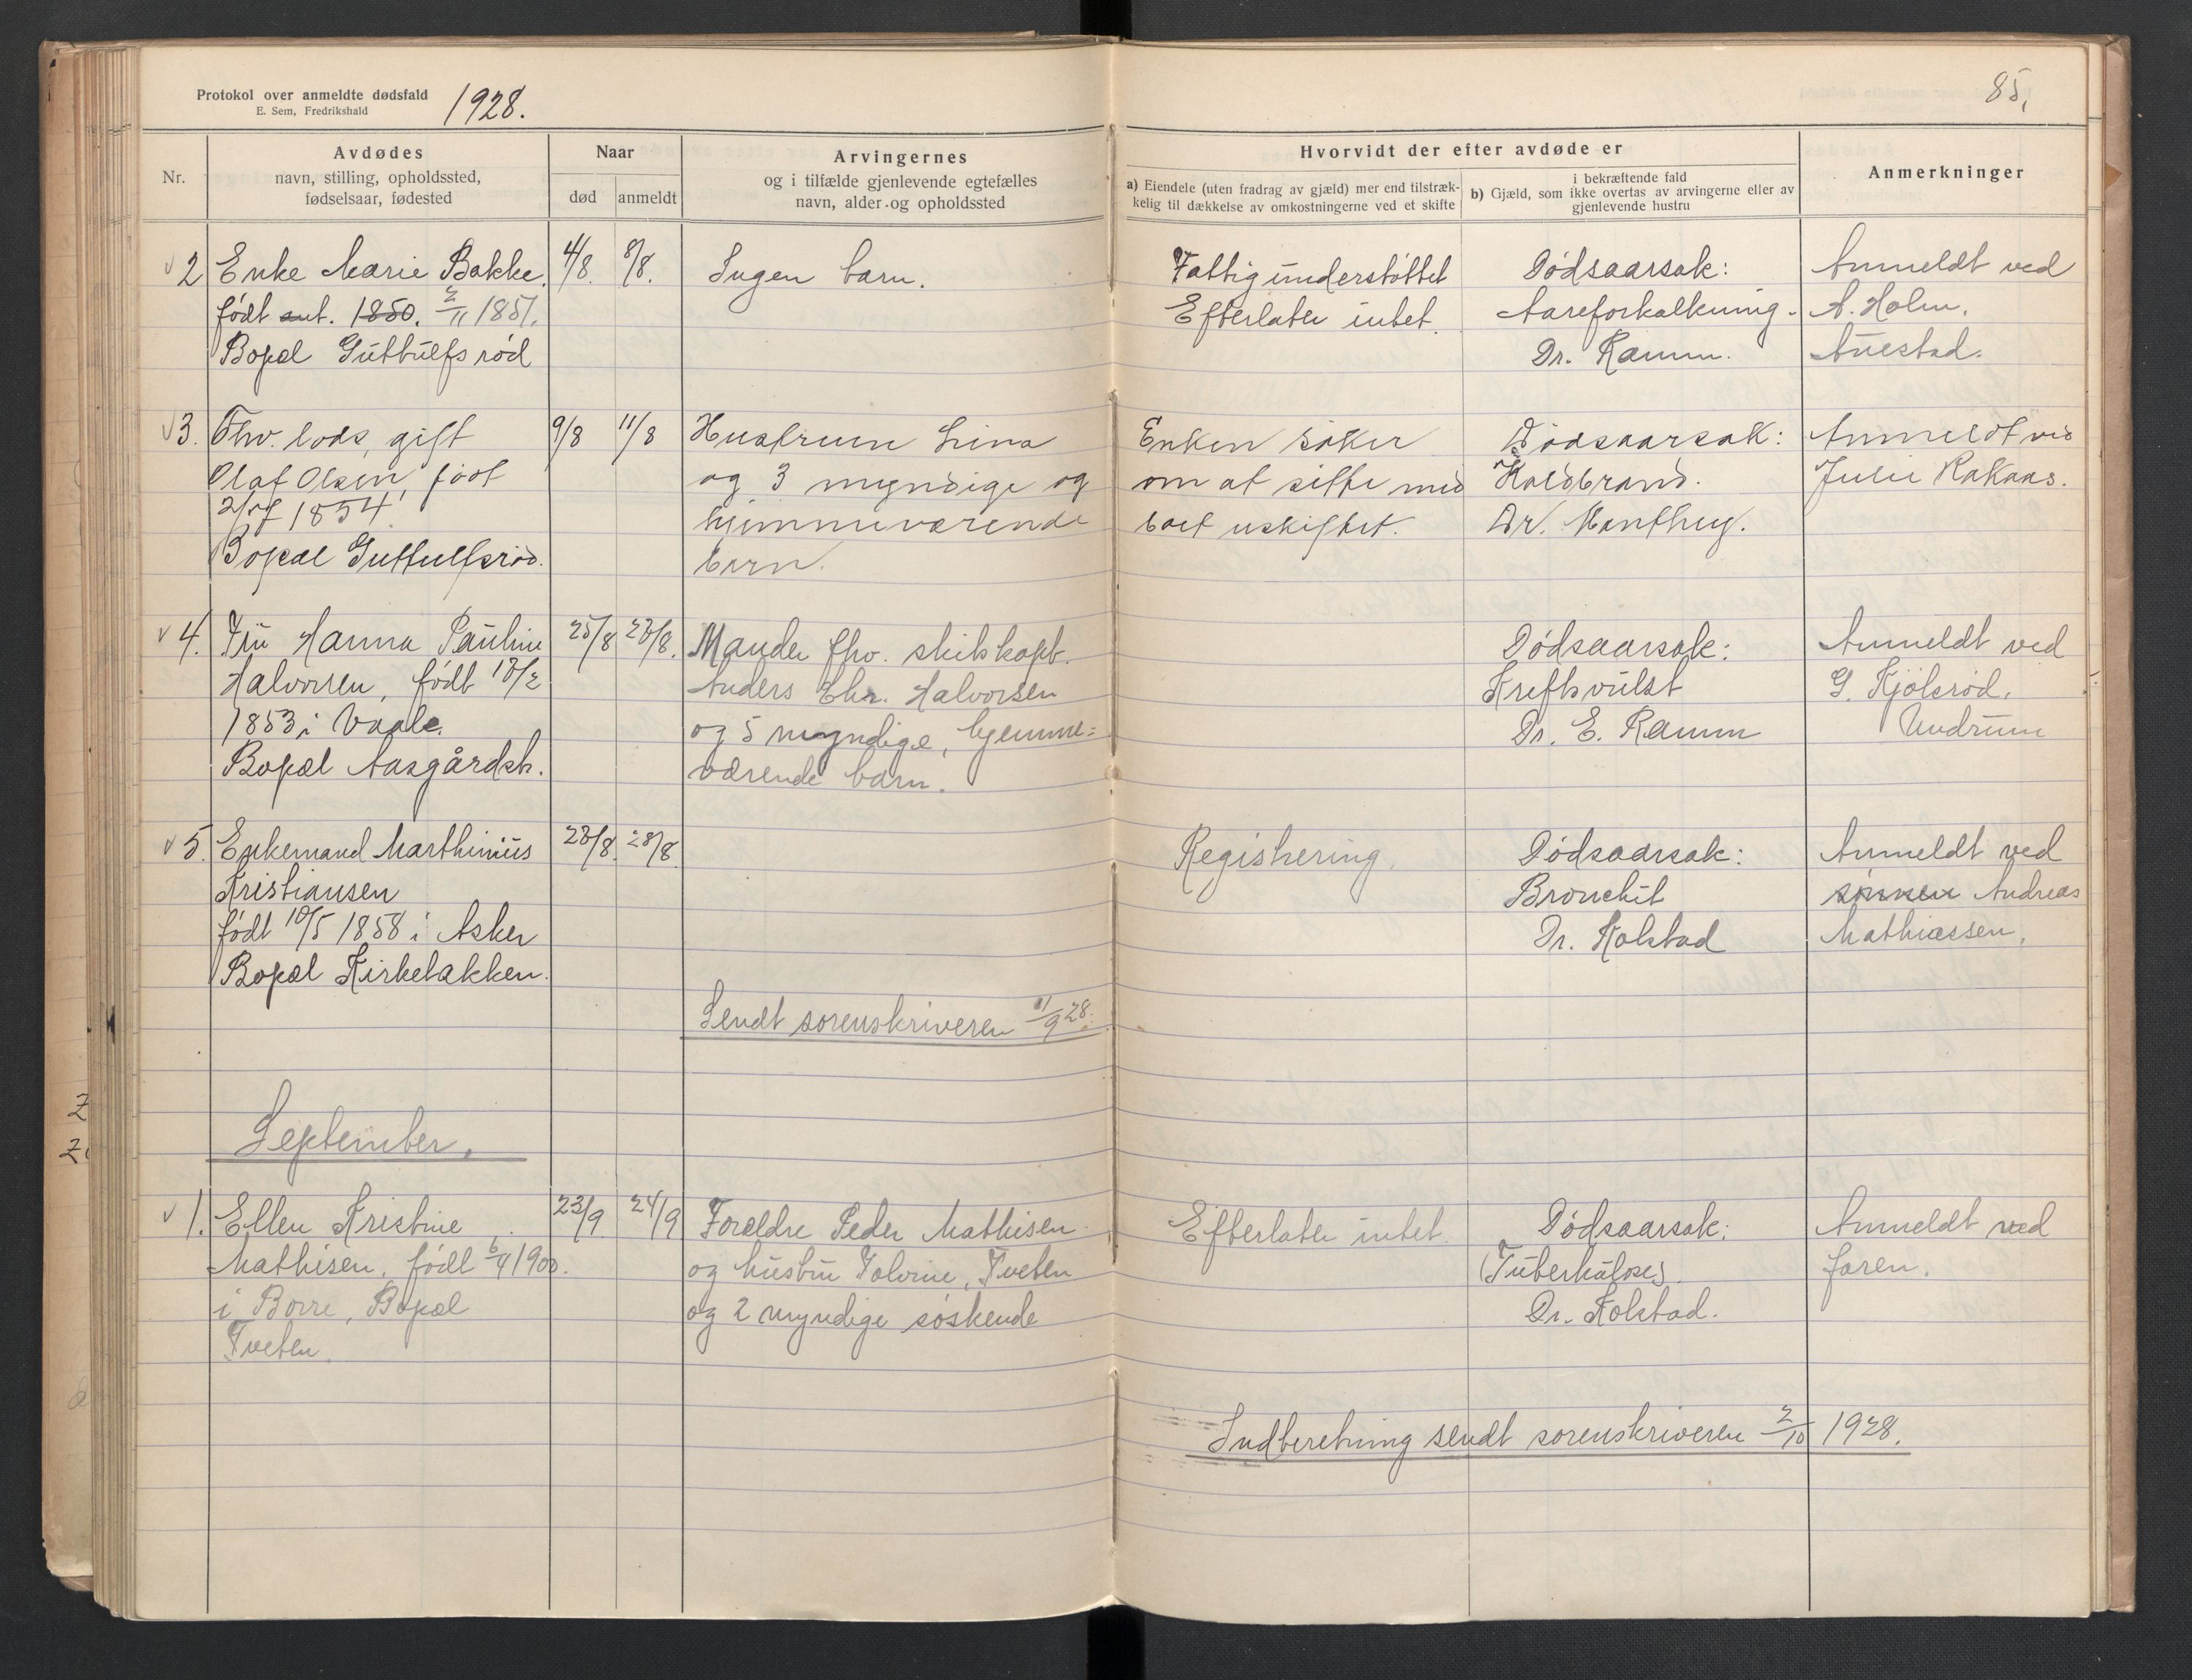 Protokol over anmeldte dødsfald
E. Sem, Fredrikshald
1928.
85,
Nr.
Avdødes
navn, stilling, opholdssted,
fødselsaar, fødested
Naar
død
anmeldt
Arvingernes
og i tilfælde gjenlevende egtefælles
navn, alder og opholdssted
Hvorvidt der efter avdøde er
a) Eiendele (uten fradrag av gjæld) mer end tilstræk-
kelig til dækkelse av omkostningerne ved et skifte
i bekræftende fald
b) Gjæld, som ikke overtas av arvingerne eller av
gjenlevende hustru
Anmerkninger
2 Enke Marie Bakke.
født ant. 1850. 2/11 1851.
Bopæl Guttulfsrød
4/8. 8/8.
Ingen barn.
Fattigunderstøttet
Efterlater intet.
Dødsaarsak:
Aareforkalkning.
Dr. Ramm.
Anmeldt ved
A. Holm.
Auestad.
3. Fhv. lods, gift
Olaf Olsen, født
1854
Bopæl Guttulfsrød.
9/8 11/8
Hustruen Lina
og 3 myndige og
hjemmeværende
barn.
Enken søker
om at sitte med
boet uskiftet.
Dødsaarsak:
Koldbrand.
Dr. Manthey.
Anmeldt ved
Julie Rakaas.
4. Fru Hanna Pauline
Halvorsen, født 18/2
1853 i Vaale.
Bopæl Aasgårdstr.
25/8 28/8.
Manden fhv. skibskapt.
Anders Chr. Halvorsen
og 5 myndige, hjemme=
værende barn.
Dødsaarsak:
Kreftsvulst
Dr. E. Ramm
Anmeldt ved
G. Kjølsrød.
Undrum
5. Enkemand Marthinius
Kristiansen
født 10/5 1858 i Asker
Bopæl Kirkebakken.
28/8. 28/8.
Registrering.
Dødsaarsak:
Bronchit
Dr. Kolstad
Anmeldt ved
Andreas
Mathiassen.
Sendt sorenskriveren 11/9 28.
September.
1. Ellen Kristine
Mathisen, født 6/4 1900.
i Borre, Bopæl
Tveten.
23/9. 24/9
Forældre Peder Mathisen
og hustru Tolvine, Tveten
og 2 myndige søskende
Efterlater intet.
Dødsaarsak:
(Tuberkulose)
Dr. Kolstad.
Anmeldt ved
faren.
Indberetning sendt sorenskriveren 2/10 1928.